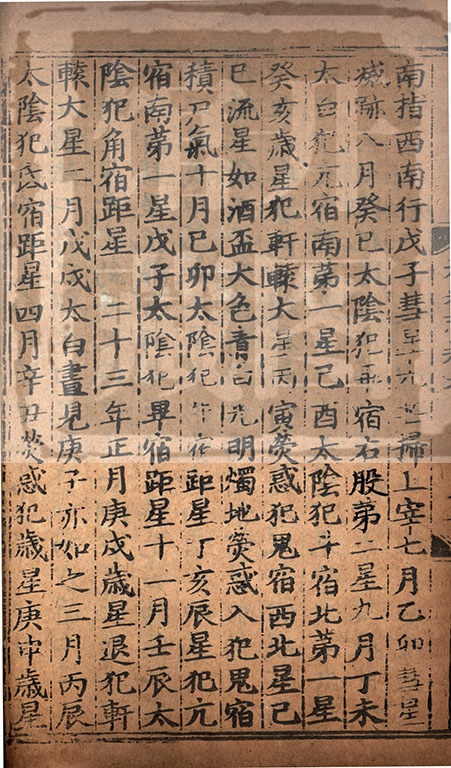 南指西南行戊子彗星光芒掃上宰七月乙卯彗星
滅跡八月癸巳太陰犯畢宿右股第二星九月丁未
太白犯亢宿南第一星己酉太陰犯斗宿北第一星
癸亥歲星犯軒轅大星丙寅熒惑犯鬼宿西北星己
巳流星如酒盃大色青白光明燭地熒惑入犯鬼宿
積尸氣十月己卯太陰犯牛宿距星丁亥辰星犯亢
宿南第一星戊子太陰犯畢宿距星十一月壬辰太
陰犯角宿距星 二十三年正月庚戌歲星退犯軒
轅大星二月戊戌太白晝見庚子亦如之三月丙辰
太陰犯氐宿距星四月辛丑熒惑犯歲星庚申歲星